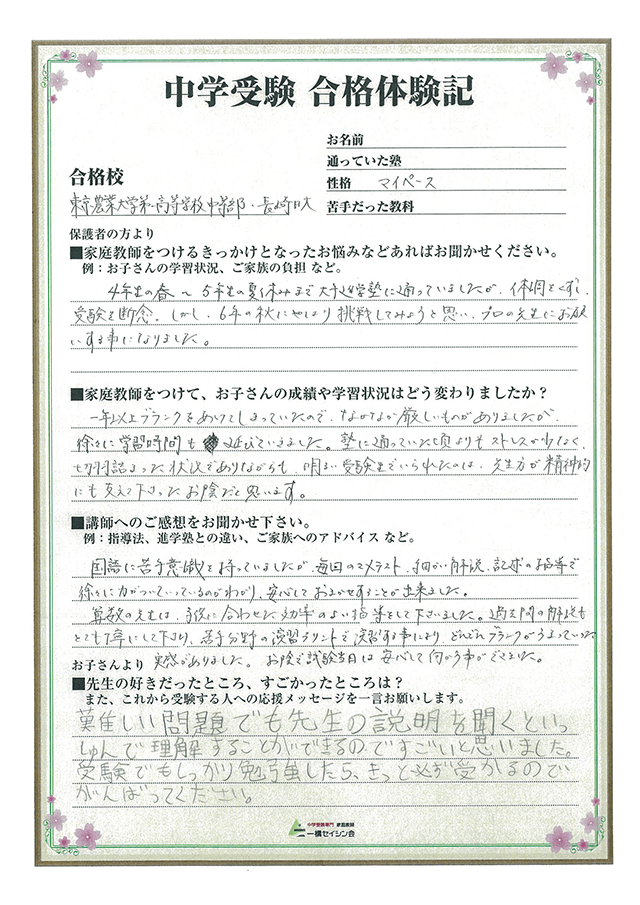 中学受験 合格体験記
お名前
通っていた塾
合格校
性格 マイペース
東京農業大学第一高等学校中等部・長崎日大
苦手だった教科
保護者の方より
■家庭教師をつけるきっかけとなったお悩みなどあればお聞かせください。
例：お子さんの学習状況、ご家族の負担 など。
4年生の春〜5年生の夏休みまで大手進学塾に通っていましたが、体調をくずし、
受験を断念。しかし、6年の秋にやはり挑戦してみようと思い、プロの先生にお願
いする事になりました。
■家庭教師をつけて、お子さんの成績や学習状況はどう変わりましたか？
一年以上ブランクをあけてしまっていたので、なかなか厳しいものがありましたが、
徐々に学習時間も延びていきました。塾に通っていた頃よりもストレスが少なく、
切羽詰まった状況でありながらも、明るい受験生でいられたのは、先生方が精神的
にも支えて下さったお陰だと思います。
■講師へのご感想をお聞かせ下さい。
例：指導法、進学塾との違い、ご家族へのアドバイス など。
国語に苦手意識を持っていましたが、毎回の テスト、細かい解説、記述の指導で
徐々に力がついていっているのがわかり、安心しておまかせすることが出来ました。
算数の先生は、子供に合わせた効率のよい指導をして下さいました。過去問の解説も
とても丁寧にして下さり、苦手分野の演習プリントで演習する事により、どんどんブランクがうまっていった
お子さんより 実感がありました。お陰で試験当日は安心して向かう事ができました。
■先生の好きだったところ、すごかったところは？
また、これから受験する人への応援メッセージを一言お願いします。
難しい問題でも先生の説明を聞くといっ
しゅんで理解することができるのですごいと思いました。
受験でもしっかり勉強したら、きっと必ず受かるので
がんばってください。
中学受験専門 家庭教師
一橋セイシン会